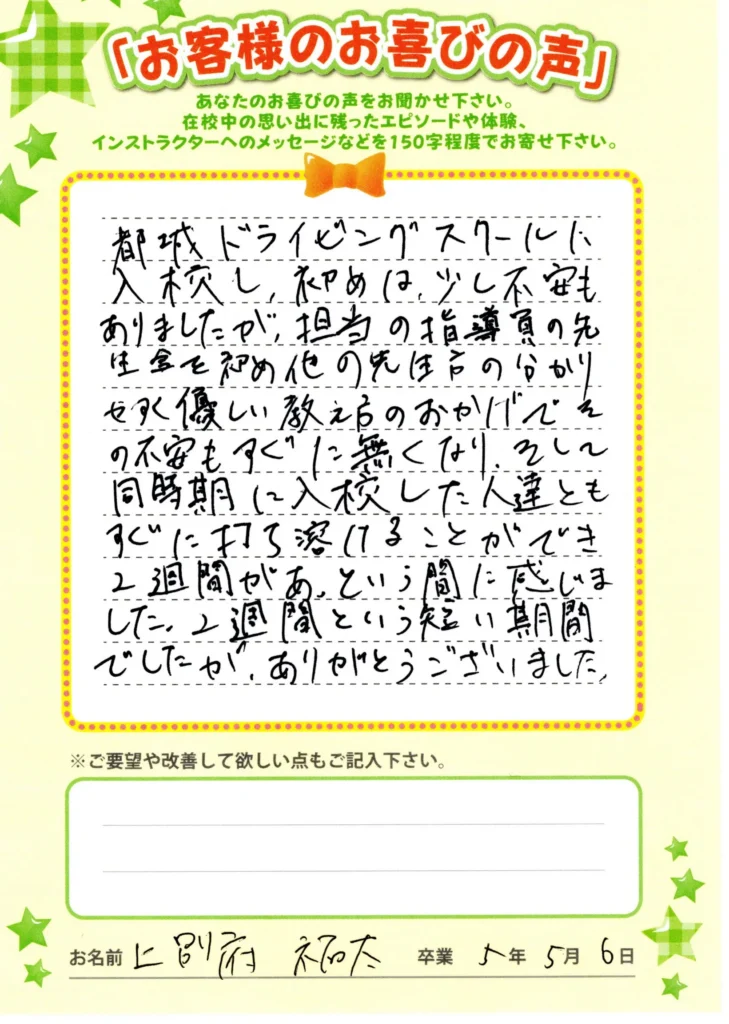 「お客様のお喜びの声」
あなたのお喜びの声をお聞かせ下さい。
在校中の思い出に残ったエピソードや体験、
インストラクターへのメッセージなどを150字程度でお寄せ下さい。
都城ドライビングスクールに
入校し、初めは、少し不安も
ありましたが、担当の指導員の先
生を初め他の先生方の分かり
やすく優しい教え方のおかげでそ
の不安もすぐに無くなり、そして
同時期に入校した人達とも
すぐに打ち溶けることができ
2週間があっという間に感じま
した。2週間という短い期間
でしたが、ありがとうございました。
※ご要望や改善して欲しい点もご記入下さい。
お名前 上別府 祐太 卒業 5年 5月 6日